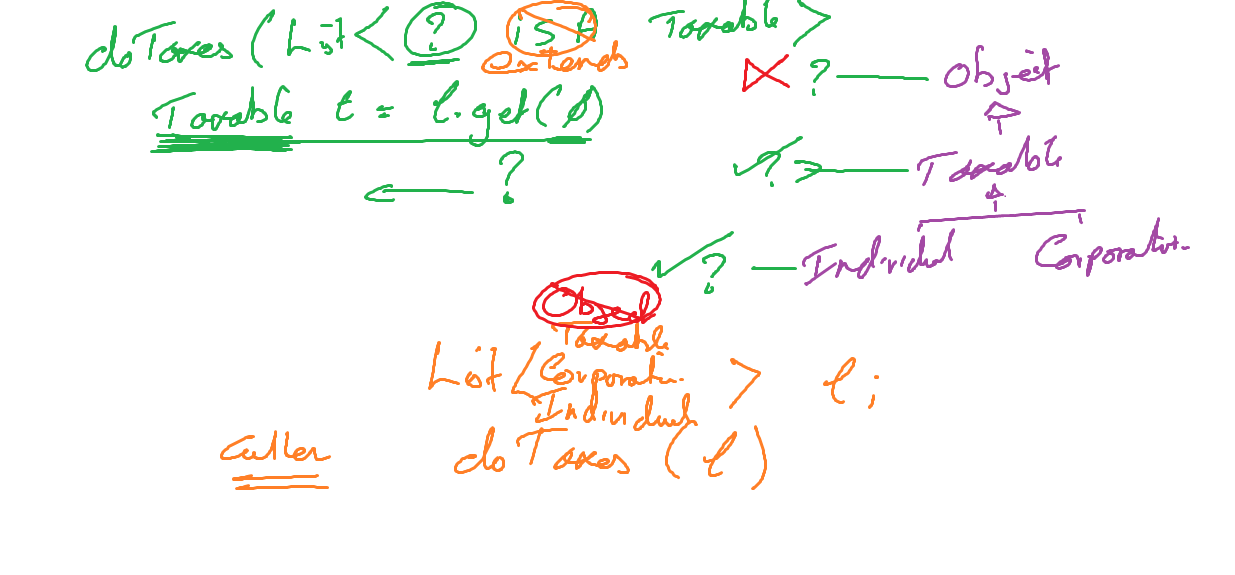 doTaxes (List< ? is A Taxable>
extends
? Object
Taxable t = l.get(0)
? Taxable
?
? Individual Corporation
Object
Taxable
List< Corporation > l;
Individual
Caller doTaxes (l)